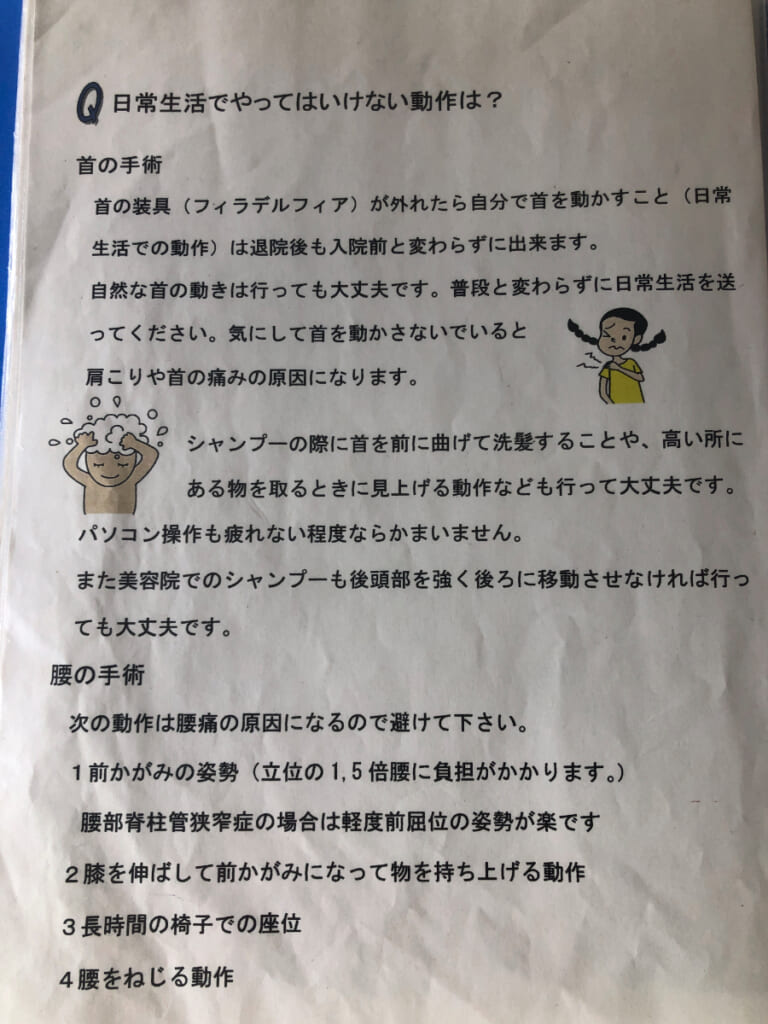 Q 日常生活でやってはいけない動作は？
首の手術
首の装具（フィラデルフィア）が外れたら自分で首を動かすこと（日常
生活での動作）は退院後も入院前と変わらずに出来ます。
自然な首の動きは行っても大丈夫です。普段と変わらずに日常生活を送
ってください。気にして首を動かさないでいると
肩こりや首の痛みの原因になります。
シャンプーの際に首を前に曲げて洗髪することや、高い所に
ある物を取るときに見上げる動作なども行って大丈夫です。
パソコン操作も疲れない程度ならかまいません。
また美容院でのシャンプーも後頭部を強く後ろに移動させなければ行っ
ても大丈夫です。
腰の手術
次の動作は腰痛の原因になるので避けて下さい。
１前かがみの姿勢（立位の1,5倍腰に負担がかかります。）
腰部脊柱管狭窄症の場合は軽度前屈位の姿勢が楽です
２膝を伸ばして前かがみになって物を持ち上げる動作
３長時間の椅子での座位
４腰をねじる動作